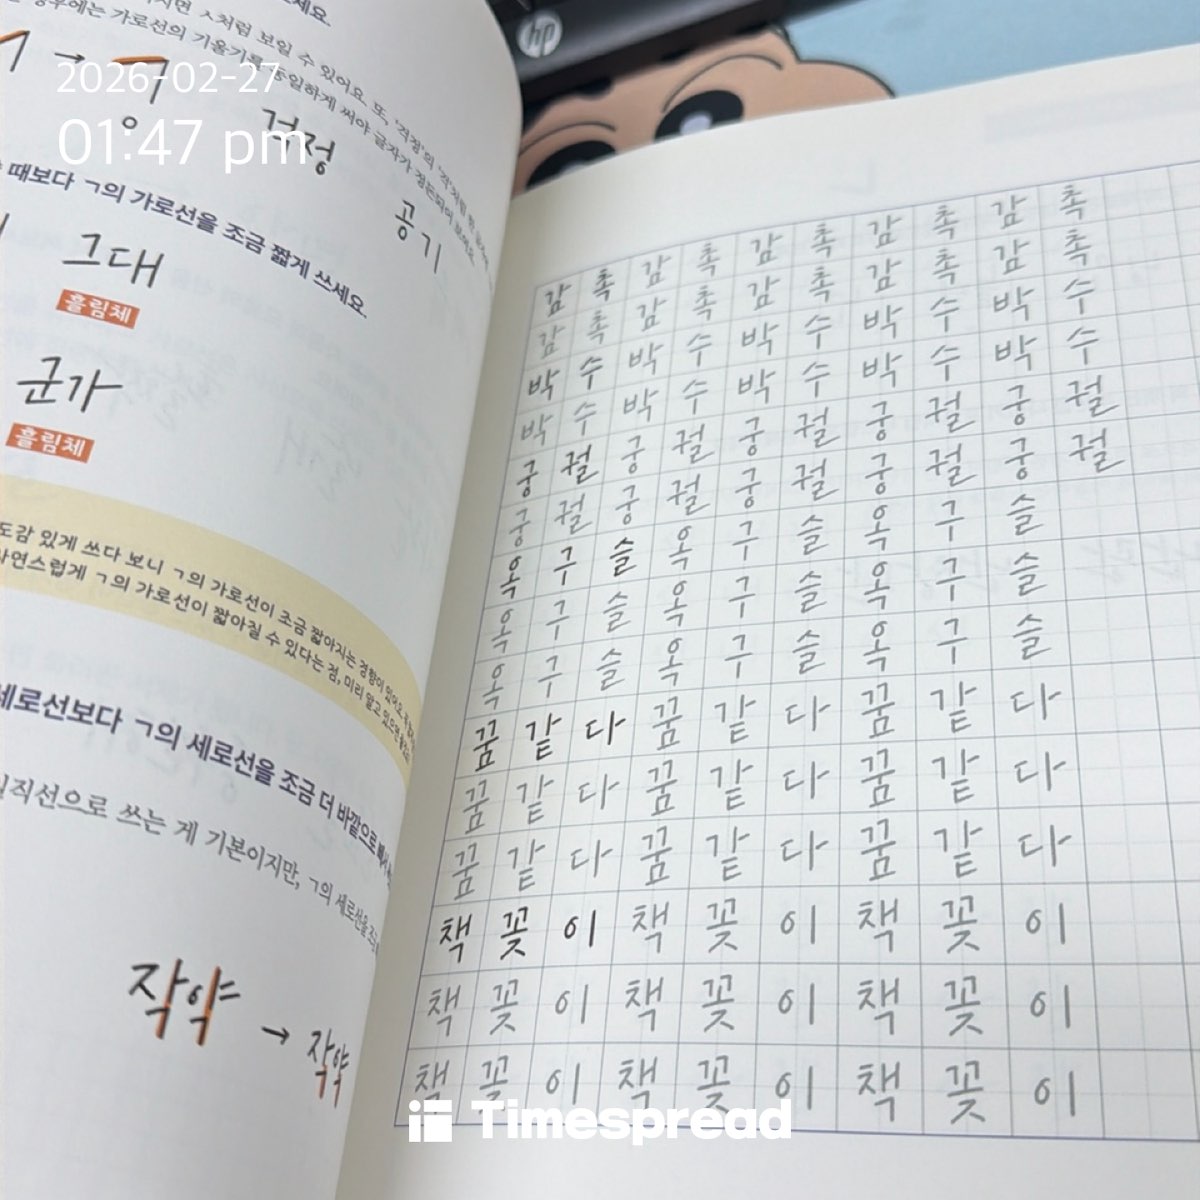 2026-02-27
01:47 pm
hp
처럼 보일 수 있어요. 또, '걱정'의 '걱'처럼
경우에는 가로선의 기울기를 동일하게 써야 글자가 정돈되어
→
걱정
공기
때보다 ㄱ의 가로선을 조금 짧게 쓰세요.
그대
흘림체
군가
흘림체
도감 있게 쓰다 보니 ㄱ의 가로선이 조금 짧아지는 경향이 있어요.
자연스럽게 ㄱ의 가로선이 짧아질 수 있다는 점, 미리 알고 있으면
세로선보다 ㄱ의 세로선을 조금 더 바깥으로
일직선으로 쓰는 게 기본이지만, ㄱ의 세로선을
작약 → 작약
감 촉 감 촉 감 촉 감 촉 감 촉
감 촉 감 촉 감 촉 감 촉 감 촉
박 수 박 수 박 수 박 수 박 수
박 수 박 수 박 수 박 수 박 수
궁 궐 궁 궐 궁 궐 궁 궐 궁 궐
궁 궐 궁 궐 궁 궐 궁 궐 궁 궐
옥 구 슬 옥 구 슬 옥 구 슬
옥 구 슬 옥 구 슬 옥 구 슬
옥 구 슬 옥 구 슬 옥 구 슬
꿈 같 다 꿈 같 다 꿈 같 다
꿈 같 다 꿈 같 다 꿈 같 다
꿈 같 다 꿈 같 다 꿈 같 다
책 꽂 이 책 꽂 이 책 꽂 이
책 꽂 이 책 꽂 이 책 꽂 이
책 꽂 이 책 꽂 이 책 꽂 이
Timespread